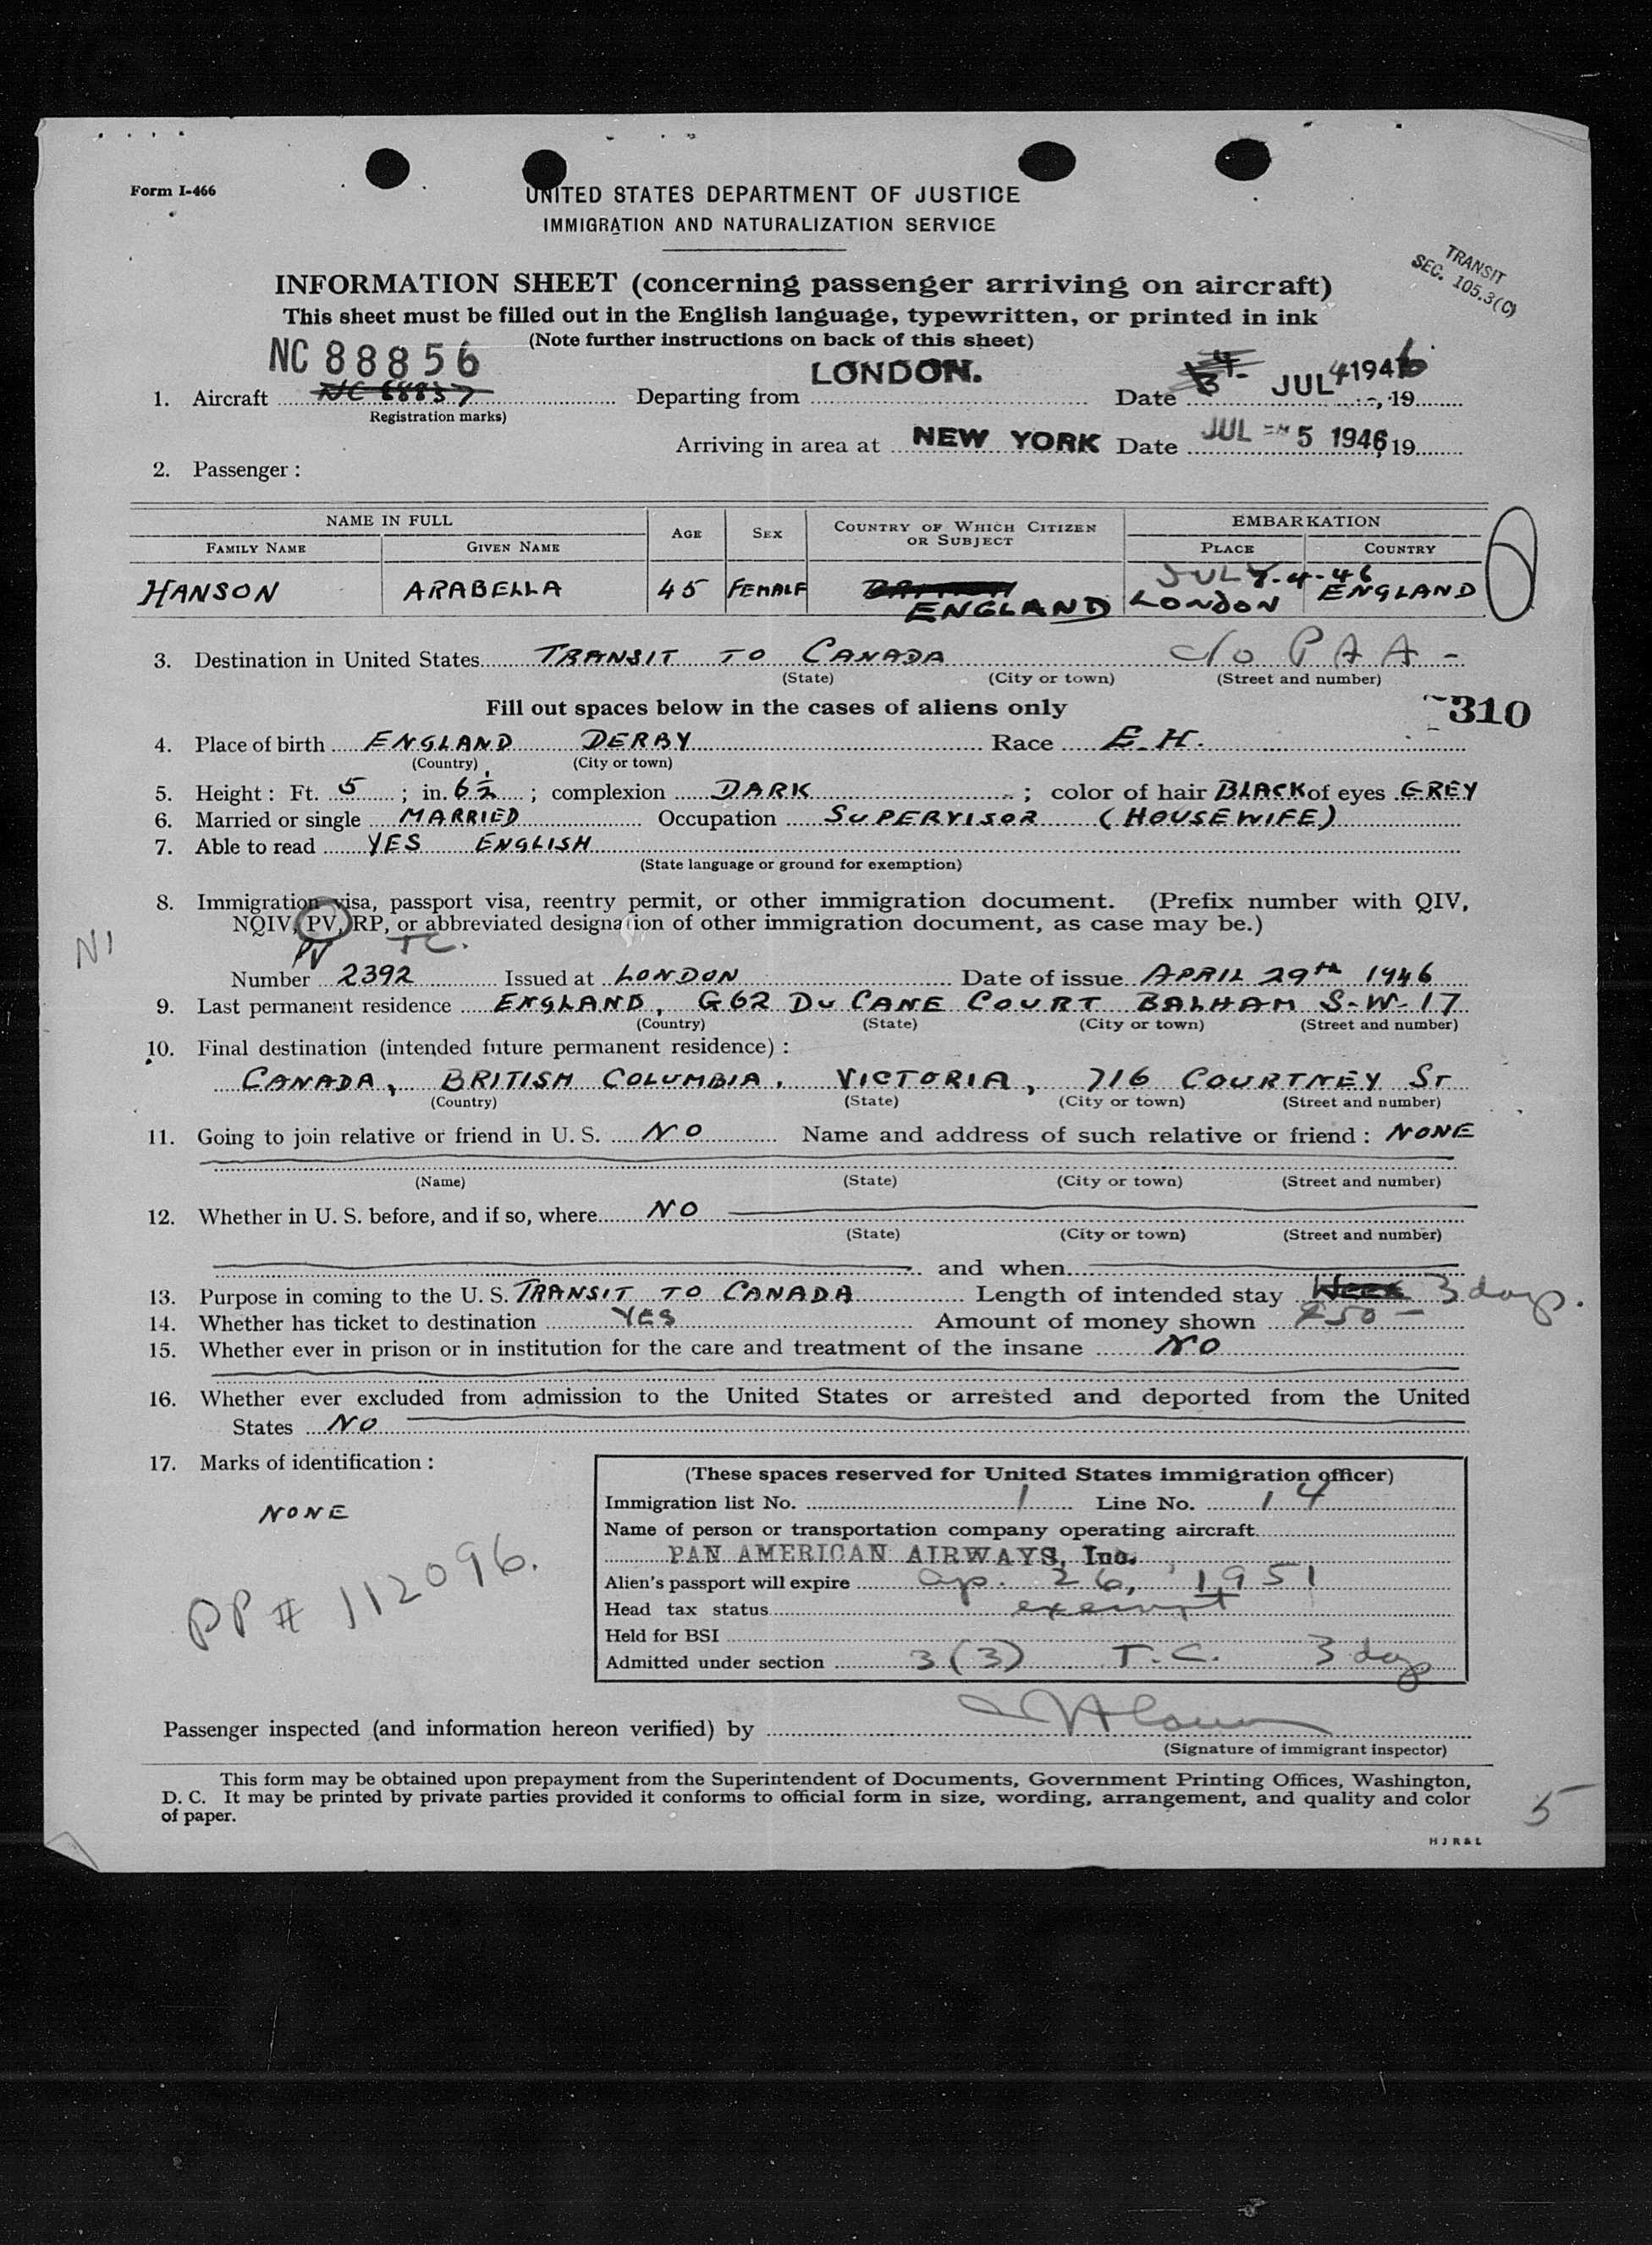 Form I-466
UNITED STATES DEPARTMENT OF JUSTICE
IMMIGRATION AND NATURALIZATION SERVICE
TRANSIT
SEC. 105.3(C)
INFORMATION SHEET (concerning passenger arriving on aircraft)
This sheet must be filled out in the English language, typewritten, or printed in ink
(Note further instructions on back of this sheet)
NC 88856 LONDON. JUL 4 1946
1. Aircraft NC 88837 Departing from Date , 19
(Registration marks)
Arriving in area at NEW YORK Date JUL 5 1946, 19
2. Passenger :
NAME IN FULL AGE SEX COUNTRY OF WHICH CITIZEN OR SUBJECT EMBARKATION
FAMILY NAME GIVEN NAME PLACE COUNTRY
JULY-4-46
HANSON ARABELLA 45 FEMALE ENGLAND LONDON ENGLAND
3. Destination in United States TRANSIT TO CANADA c/o PAA -
(State) (City or town) (Street and number)
Fill out spaces below in the cases of aliens only 310
4. Place of birth ENGLAND DERBY Race E.H.
(Country) (City or town)
5. Height : Ft. 5 ; in. 6½ ; complexion DARK ; color of hair BLACK of eyes GREY
6. Married or single MARRIED Occupation SUPERVISOR (HOUSEWIFE)
7. Able to read YES ENGLISH
(State language or ground for exemption)
8. Immigration visa, passport visa, reentry permit, or other immigration document. (Prefix number with QIV,
NQIV, PV, RP, or abbreviated designation of other immigration document, as case may be.)
N1 PV TC.
Number 2392 Issued at LONDON Date of issue APRIL 29th 1946
9. Last permanent residence ENGLAND, G62 DU CANE COURT BALHAM S-W-17
(Country) (State) (City or town) (Street and number)
10. Final destination (intended future permanent residence) :
CANADA, BRITISH COLUMBIA, VICTORIA, 716 COURTNEY ST
(Country) (State) (City or town) (Street and number)
11. Going to join relative or friend in U. S. NO Name and address of such relative or friend : NONE
(Name) (State) (City or town) (Street and number)
12. Whether in U. S. before, and if so, where NO
(State) (City or town) (Street and number)
and when
13. Purpose in coming to the U. S. TRANSIT TO CANADA Length of intended stay WEEK 3 days.
14. Whether has ticket to destination YES Amount of money shown £50 -
15. Whether ever in prison or in institution for the care and treatment of the insane NO
16. Whether ever excluded from admission to the United States or arrested and deported from the United
States NO
17. Marks of identification :
NONE
PP # 112096.
(These spaces reserved for United States immigration officer)
Immigration list No. 1 Line No. 14
Name of person or transportation company operating aircraft
PAN AMERICAN AIRWAYS, Inc.
Alien's passport will expire Ap. 26, 1951
Head tax status exempt
Held for BSI
Admitted under section 3(3) T.C. 3 days
Passenger inspected (and information hereon verified) by
(Signature of immigrant inspector)
This form may be obtained upon prepayment from the Superintendent of Documents, Government Printing Offices, Washington,
D. C. It may be printed by private parties provided it conforms to official form in size, wording, arrangement, and quality and color
of paper.
5
HJR&L